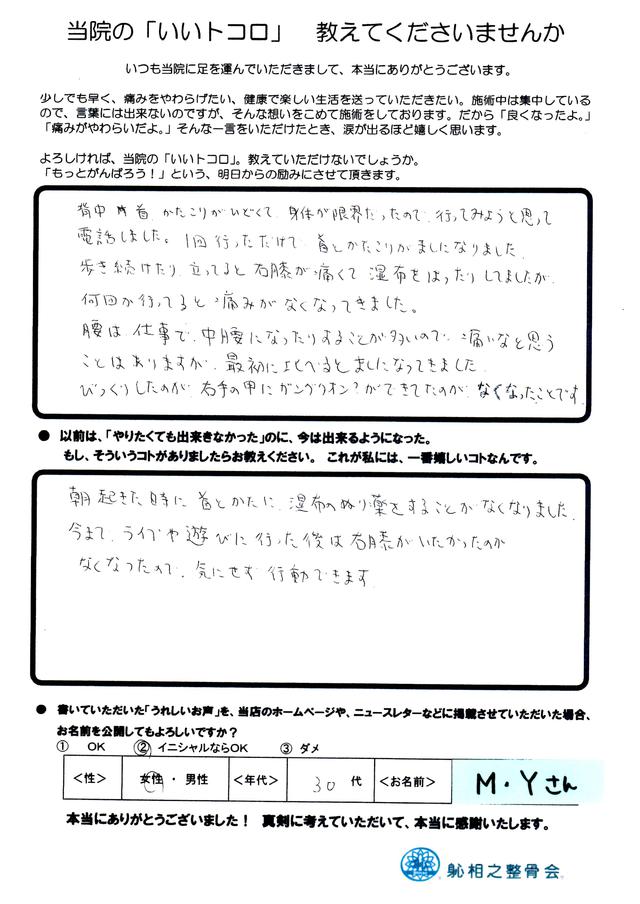 当院の「いいトコロ」　教えてくださいませんか
いつも当院に足を運んでいただきまして、本当にありがとうございます。
少しでも早く、痛みをやわらげたい、健康で楽しい生活を送っていただきたい。施術中は集中している
ので、言葉には出来ないのですが、そんな想いをこめて施術をしております。だから「良くなったよ。」
「痛みがやわらいだよ。」そんな一言をいただけたとき、涙が出るほど嬉しく思います。
よろしければ、当院の「いいトコロ」。教えていただけないでしょうか。
「もっとがんばろう！」という、明日からの励みにさせて頂きます。
背中 首 かたこりがひどくて、身体が限界だったので、行ってみようと思って
電話しました。1回行っただけで 首とかたこりがましになりました
歩き続けたり 立ってると 右膝が痛くて 湿布をはったりしてましたが
何回か行ってると 痛みがなくなってきました。
腰は 仕事で、中腰になったりすることが多いので 痛いなと思う
ことはありますが、最初に比べるとましになってきました
びっくりしたのが 右手の甲にガングリオン？ができてたのが なくなったことです
● 以前は、「やりたくても出来きなかった」のに、今は出来るようになった。
もし、そういうコトがありましたらお教えください。　これが私には、一番嬉しいコトなんです。
朝起きた時に 首とかたに 湿布やぬり薬をすることがなくなりました
今まで、ライブや遊びに行った後は右膝がいたかったのが
なくなったので、気にせず 行動できます
● 書いていただいた「うれしいお声」を、当店のホームページや、ニュースレターなどに掲載させていただいた場合、
お名前を公開してもよろしいですか？
① OK ② イニシャルならOK ③ ダメ
＜性＞ 女性 ・ 男性 ＜年代＞ 30 代 ＜お名前＞ M・Yさん
本当にありがとうございました！　真剣に考えていただいて、本当に感謝いたします。
躬相之整骨会